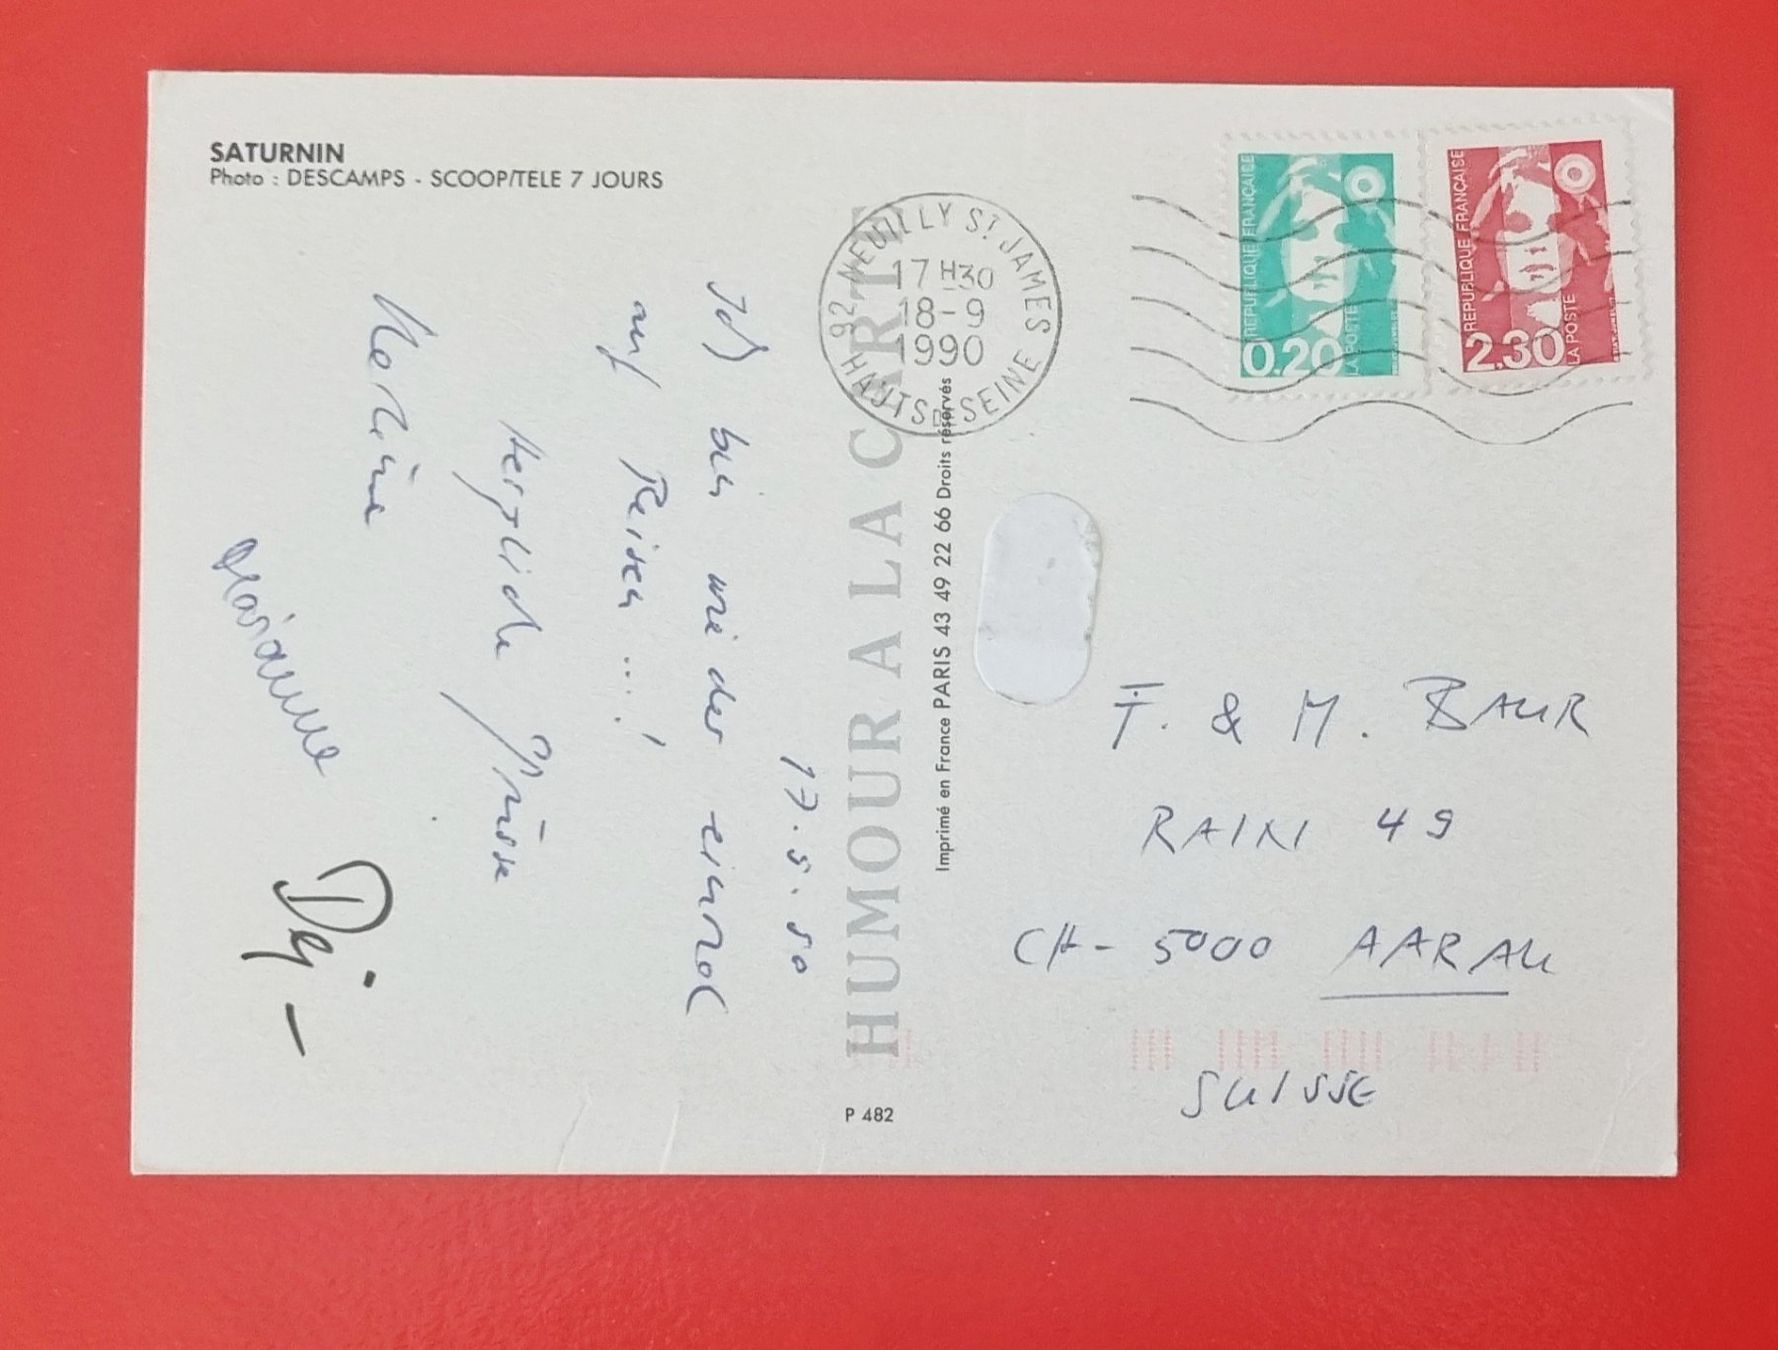 SATURNIN
Photo : DESCAMPS - SCOOP/TELE 7 JOURS
17.9.90
Ich bin wieder einmal
auf Reisen ...!
Herzliche Grüsse
Marianne
HUMOUR A LA CARTE
Imprimé en France PARIS 43 49 22 66 Droits réservés
P 482
92 NEUILLY ST JAMES
17 H30
18-9
1990
HAUTS DE SEINE
REPUBLIQUE FRANÇAISE
0.20
LA POSTE
REPUBLIQUE FRANÇAISE
2.30
LA POSTE
F. & M. BAUR
RAIN 49
CH- 5000 AARAU
SUISSE